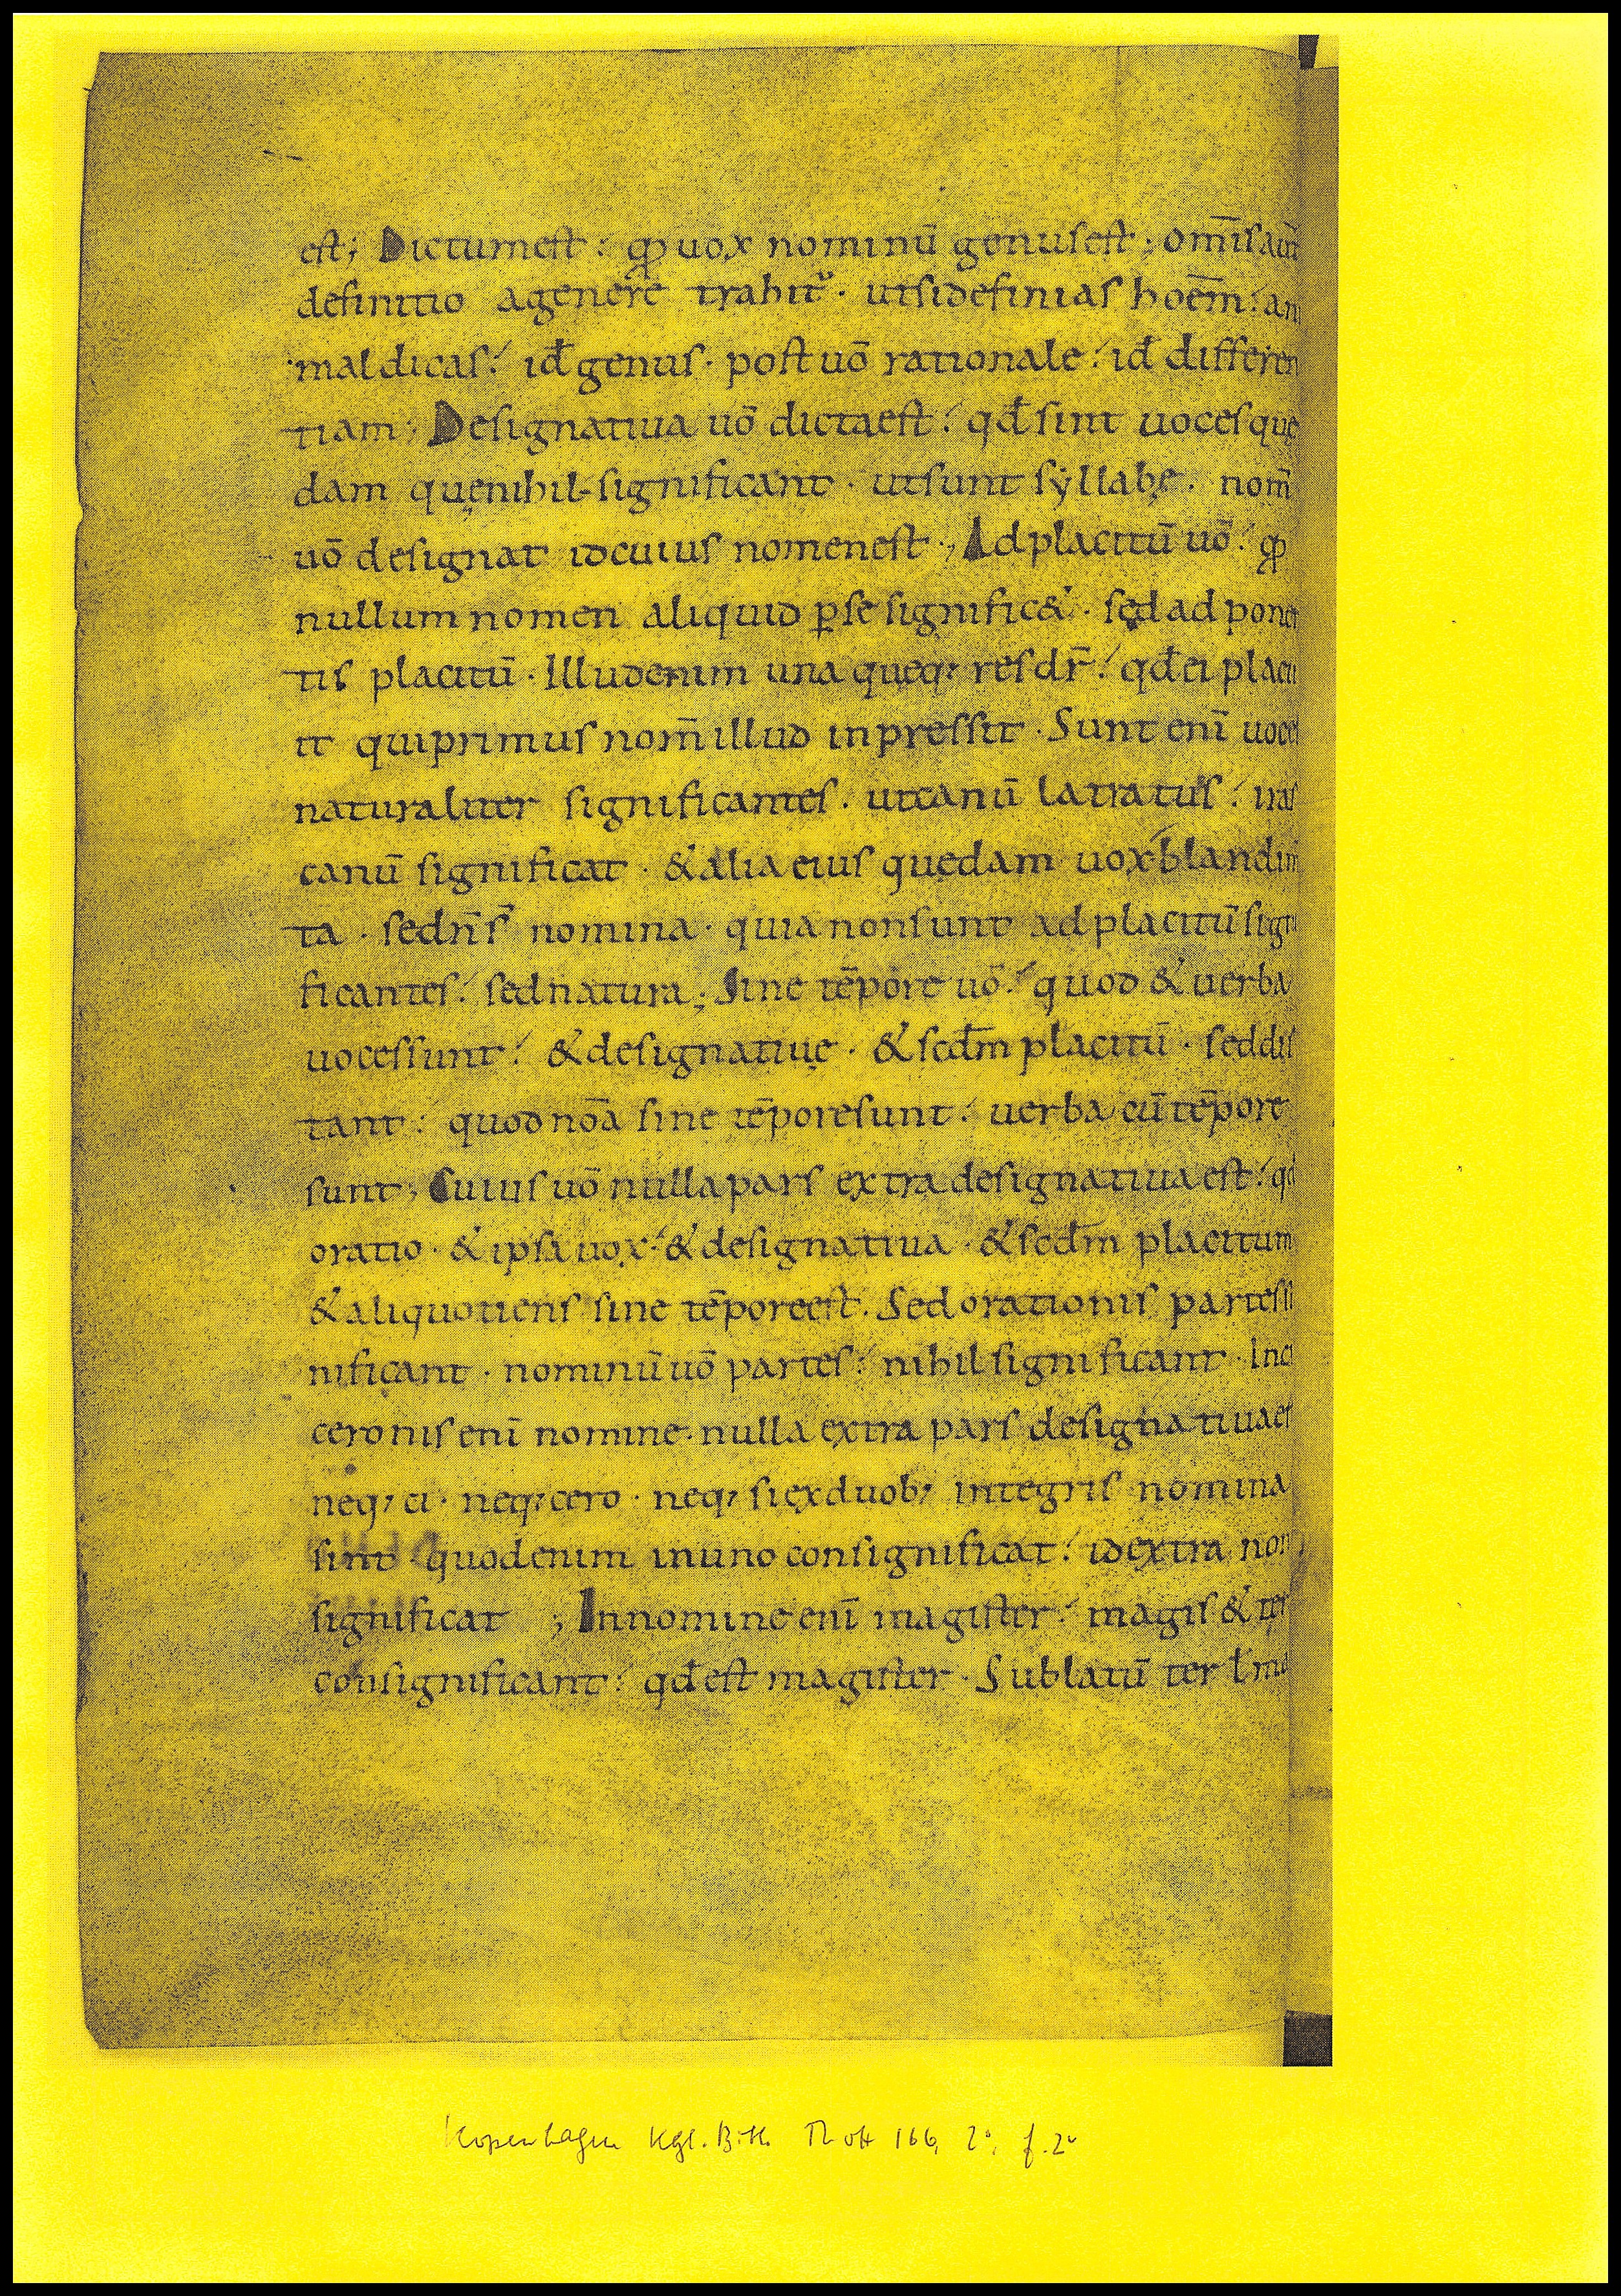 est; Dictumest: qđ uox nominū genusest; om̄isaut̄
definitio agenere trahit᷑. utsidefinias hoēm: ani
maldicas: id÷ genus. post uō rationale: id÷ differen
tiam; Designatiua uō dictaest: qđ sint uocesquę
dam quęnihil significant. utsunt syllabę. nom̄
uō designat idcuius nomenest; Adplacitū uō: qđ
nullumnomen aliquid ꝑse signific&. sed ad ponen
tis placitū. Illudenim una queq; res dr̄: qđei placu
it quiprimus nom̄illud inpressit. Sunt enī uoces
naturaliter significantes. utcanū latratus: iras
canū significat. &alia eius quędam uox blandim̄
ta. sedn̄s̄ nomina. quia nonsunt adplacitū signi
ficantes: sednatura; Sine tēpore uō: quod &uerba
uocessunt: &designatiuę. &scđm placitū. seddis
tant: quodnoa̅ sine tēporesunt: uerba cūtēpore
sunt; Cuius uō nullapars extra designatiuaest: qđ
oratio. &ipsa uox: &designatiua. &scđm placitum
&aliquotiens sine tēporeest. Sed orationis partes si
nificant. nominū uō partes: nihil significant. Inci
ceronis enī nomine. nulla extra pars designatiuaest
neq; ci. neq; cero. neq; siexduob; integris nomina
sint quodenim inuno consignificat: idextra non
significat ; Innomine enī magister: magis & ter
consignificant: qđest magister. Sublatū ter ł ma
Kopenhagen Kgl. Bibl. Thott 166, 2°, f. 2v